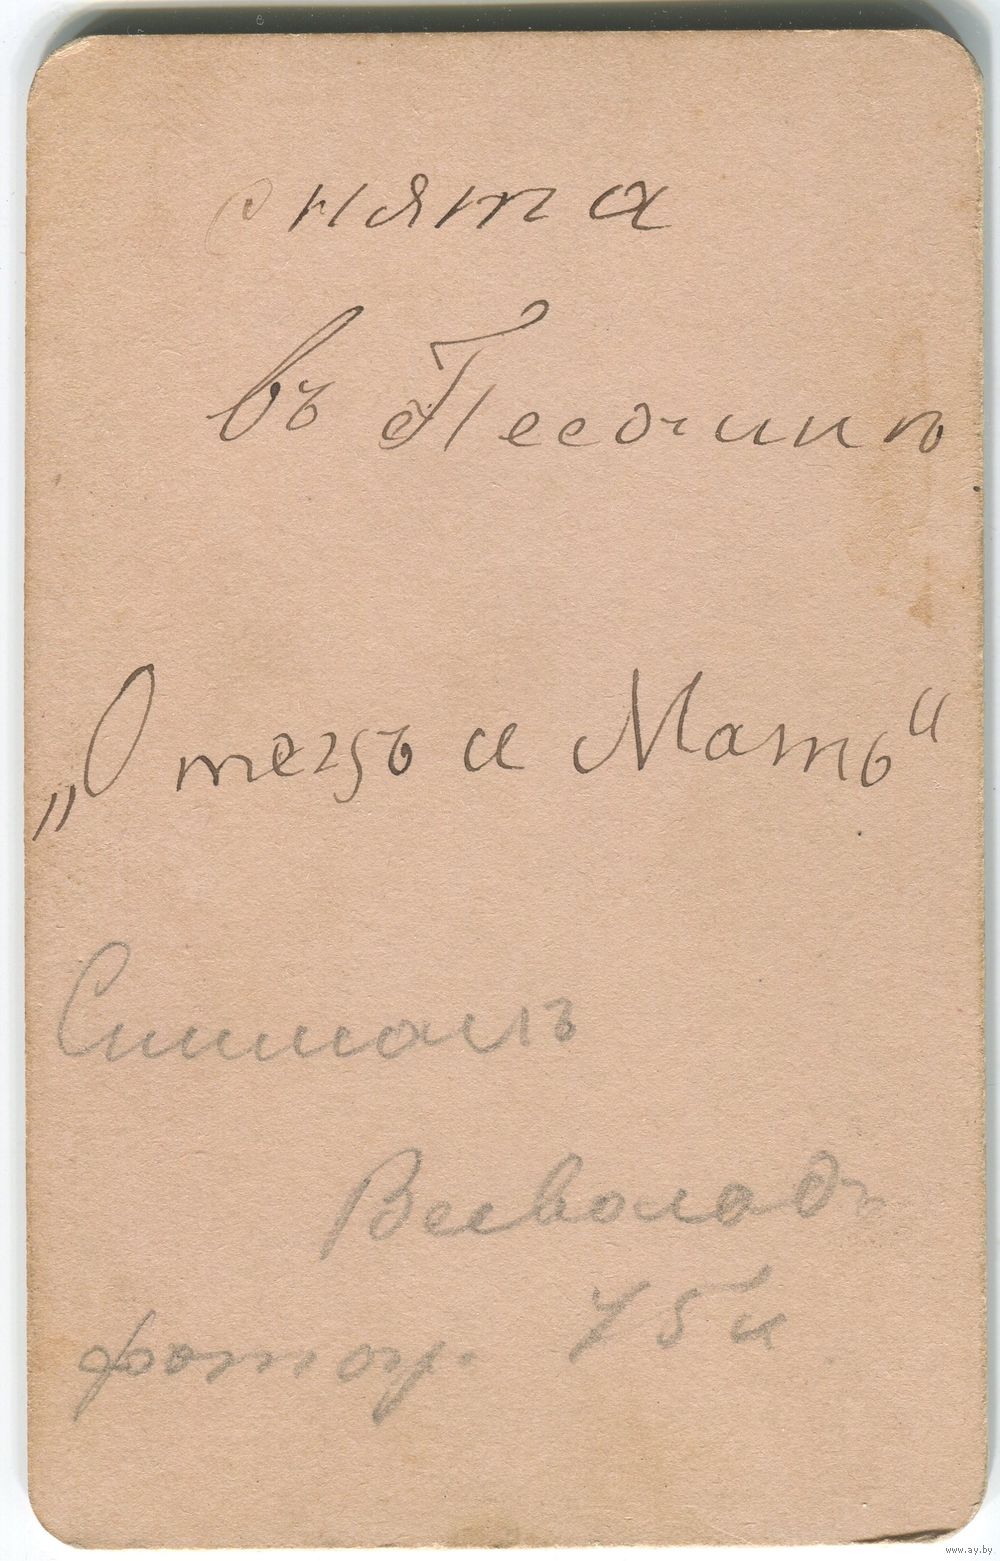 снята
въ Песочинѣ
„Отецъ и Мать“
Снималъ
Всеволодъ
фотогр. 75 и
www.ay.by